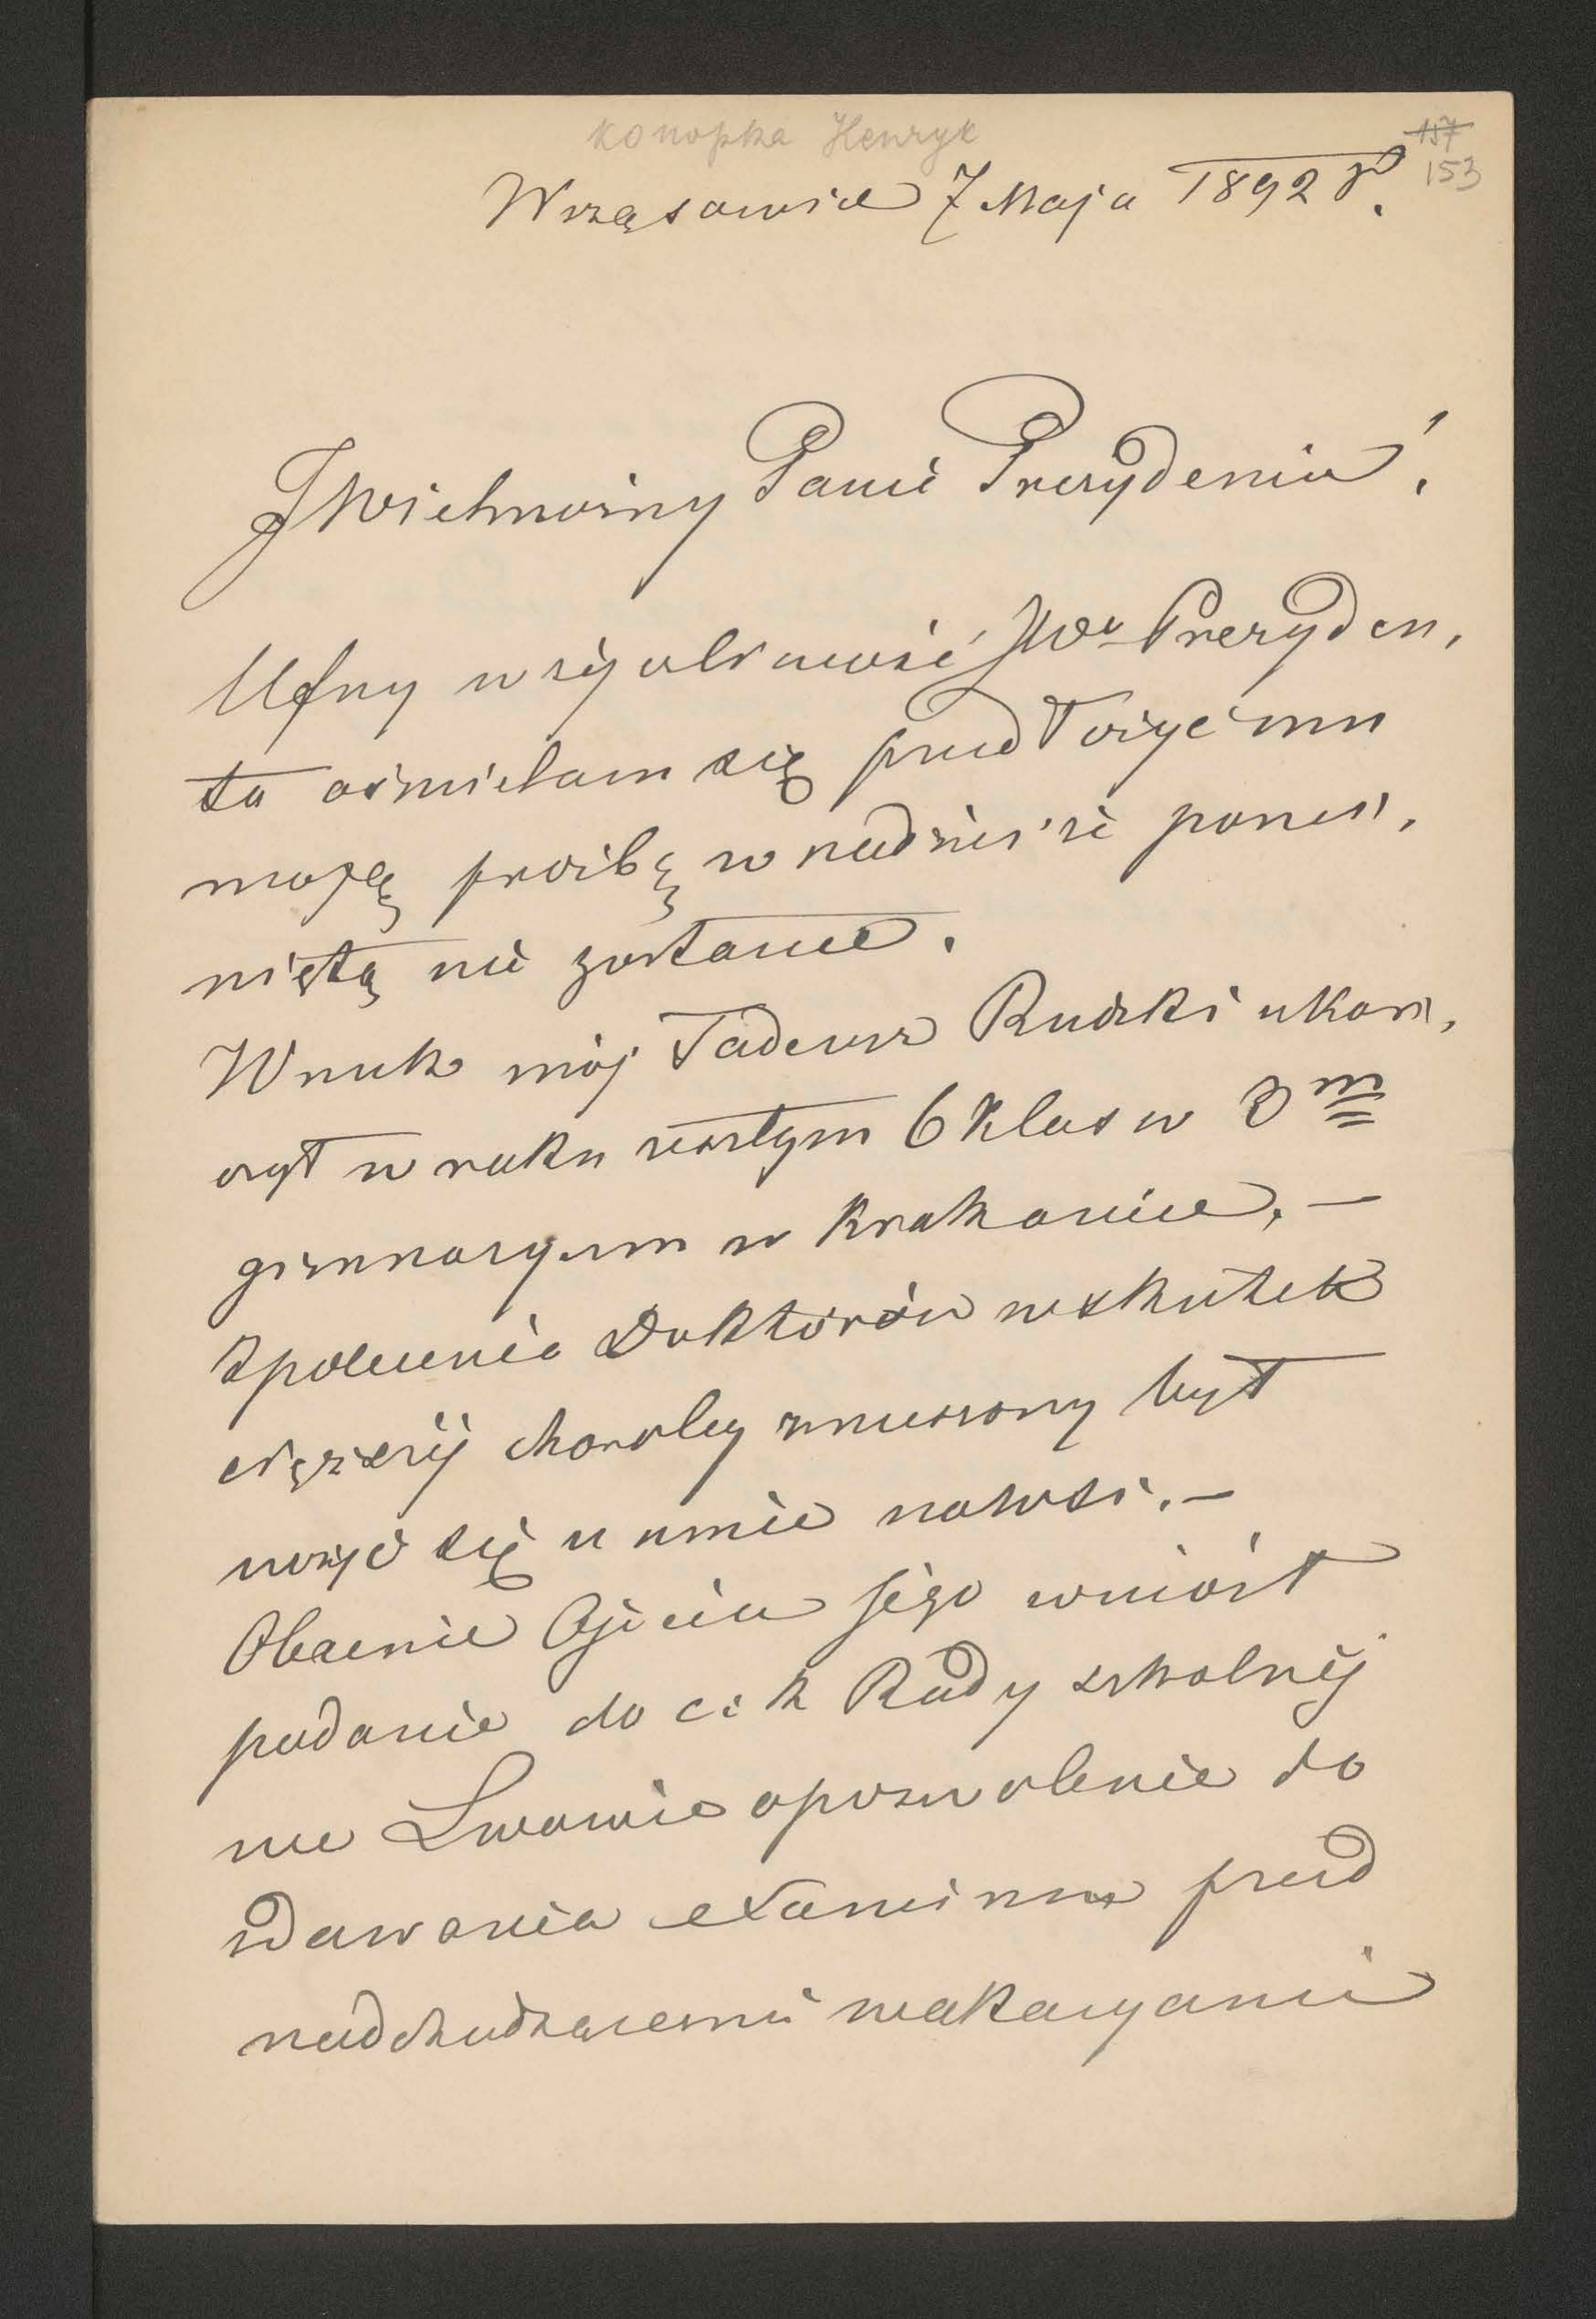 Konopka Henryk
157
153
Wrząsowice 7 Maja 1892 r.
JWielmożny Panie Prezydencie!
Ufny w życzliwość JWo Prezyden,
ta ośmielam się przedłożyć mu
moję prośbę w nadziei że pomi,
niętą nie zostanie.
Wnuk mój Tadeusz Rudzki ukoń,
czył w roku zeszłym 6 klas w 3m
gimnazyum w Krakowie, —
Z polecenia Doktorów wskutek
cięzkiej choroby zmuszony był
uczyć się u mnie na wsi. —
Obecnie Ojciec jego wniósł
podanie do c. k Rady szkolnej
we Lwowie o pozwolenie do
zdawania examinu przed
nadchodzącemi wakacyami